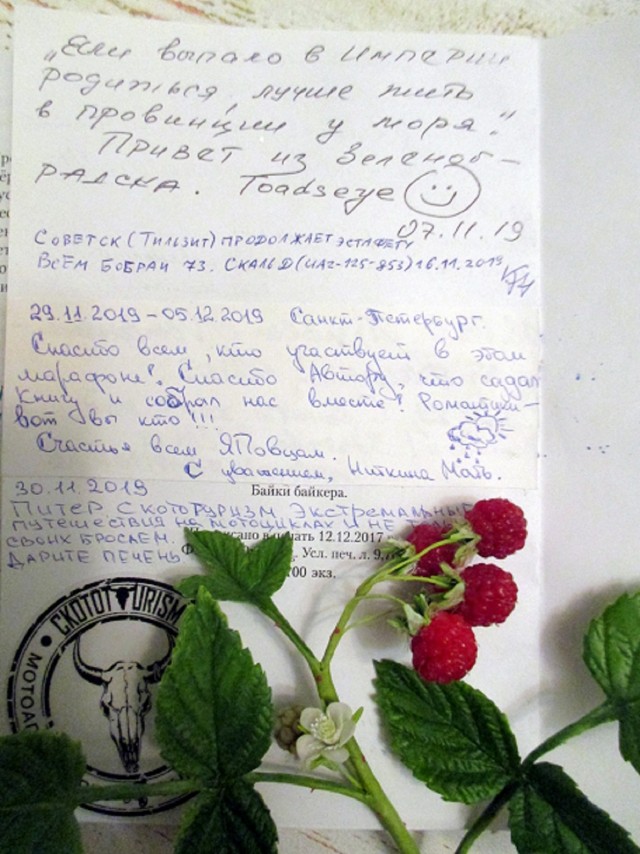 „Если выпало в Империи
родиться, лучше жить
в провинции у моря."
Привет из Зеленог-
радска. Toadseye
07.11.19
Советск (Тильзит) продолжает эстафету
Всем Бобра и 73. Скальд (UA2-125-853) 16.11.2019
29.11.2019 – 05.12.2019 Санкт-Петербург.
Спасибо всем, кто участвует в этом
марафоне! Спасибо Автору, что создал
книгу и собрал нас вместе! Романтики –
вот вы кто!!!
Счастья всем ЯПовцам.
С уважением, Ниткина Мать.
30.11.2019
Байки байкера.
Питер Скототуризм. Экстремальные
путешествия на мотоциклах и не
своих бросаем.
Дарите печень
печать 12.12.2017
Усл. печ. л. 9,
700 экз.
СКОТОТURISM
МОТО